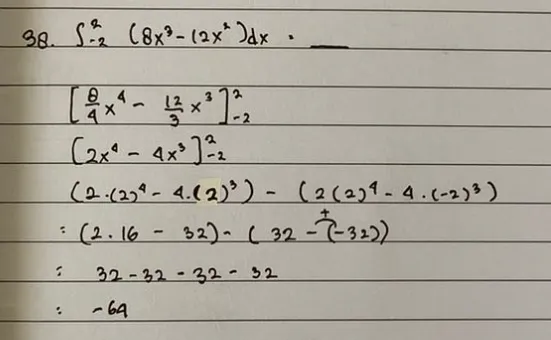 38. ∫₋₂² (8x³ - 12x²)dx = __
[8/4 x⁴ - 12/3 x³]₋₂²
[2x⁴ - 4x³]₋₂²
(2·(2)⁴ - 4.(2)³) - (2(2)⁴ - 4.(-2)³)
= (2.16 - 32) - (32 - (-32))
+
= 32 - 32 - 32 - 32
= -64